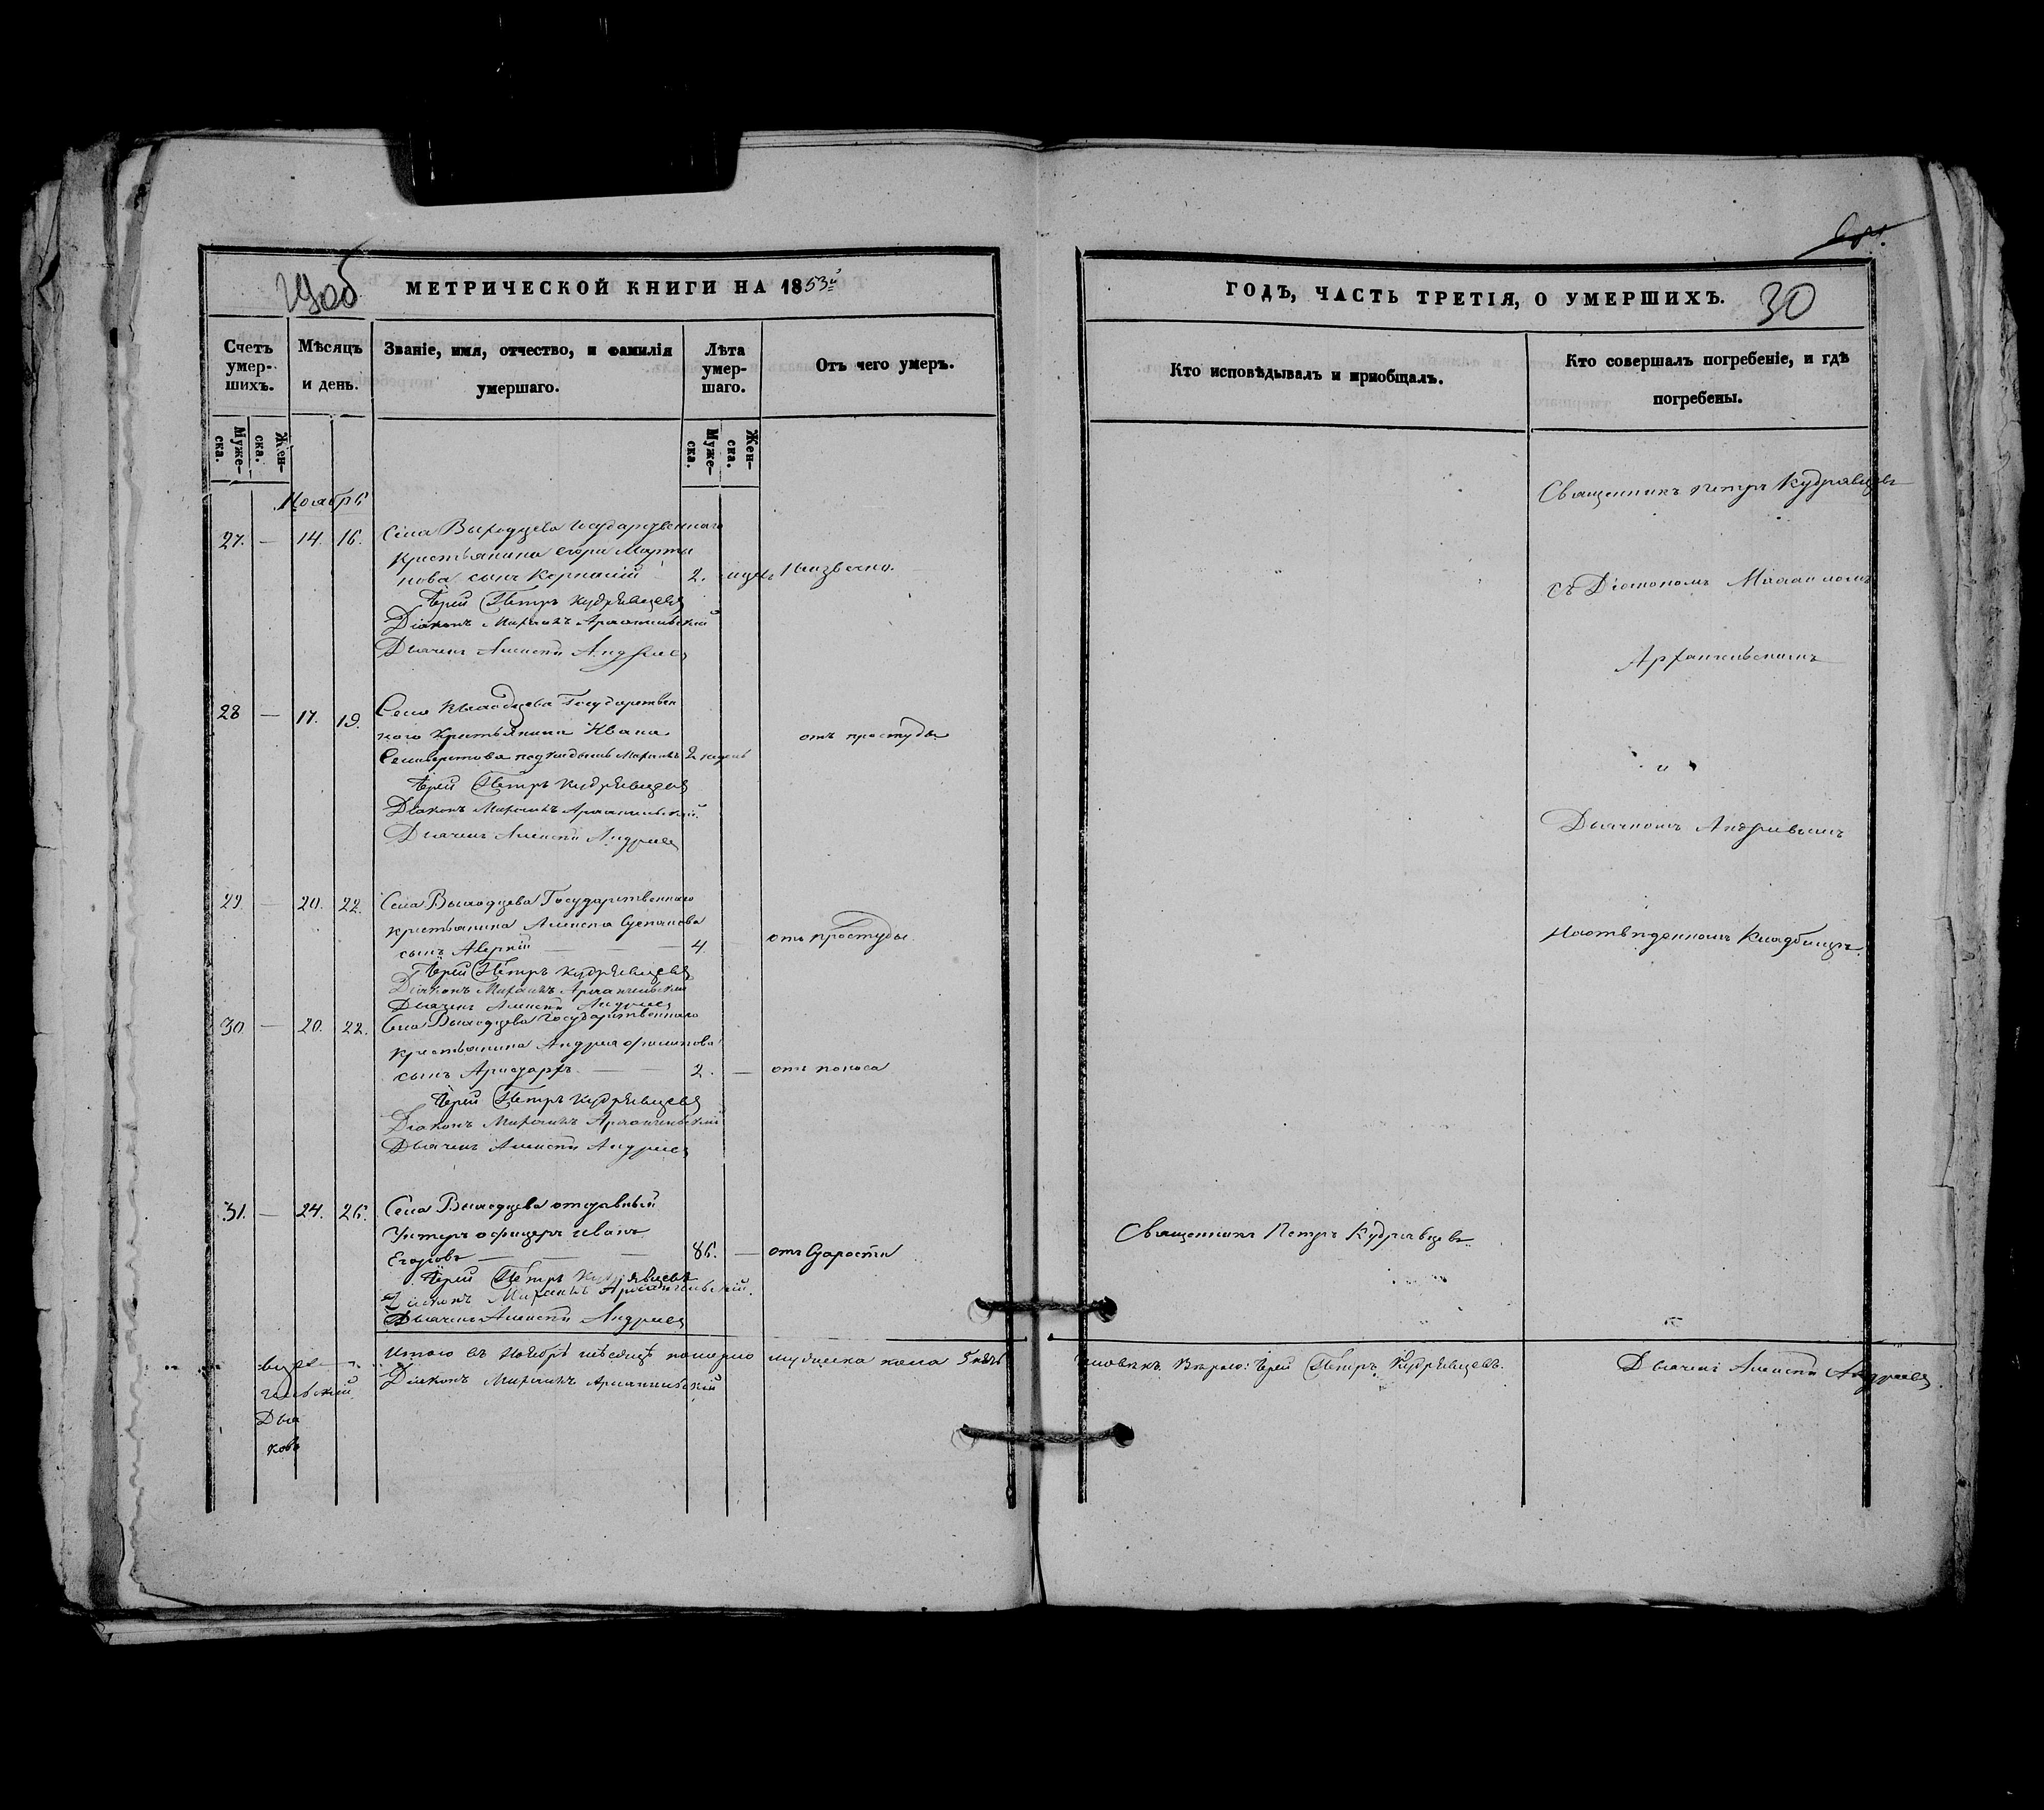 29об
МЕТРИЧЕСКОЙ КНИГИ НА 1853й
Счетъ умер-шихъ.
Мѣсяцъ и день.
Званіе, имя, отчество, и фамилія умершаго.
Лѣта умер-шаго.
Отъ чего умеръ.
Муже-ска. Жен-ска.
Муже-ска. Жен-ска.
Ноябрь
27. — 14. 16. Села Выходцева Государственнаго
крестьянина Егора Марты
нова сынъ 2.
Іерей Петръ Кудрявцевъ
Діаконъ Михаилъ Архангельскій
Дьячекъ Алексѣй Андреевъ
28 — 17. 19. Села Выходцева Государствен
наго крестьянина Ивана
подкидышъ Михаилъ 2 недѣль отъ простуды
Іерей Петръ Кудрявцевъ
Діаконъ Михаилъ Архангельскій
Дьячекъ Алексѣй Андреевъ
29. — 20. 22. Села Выходцева Государственнаго
крестьянина Алексѣя Степанова
сынъ Аверкій — — 4. отъ простуды
Іерей Петръ Кудрявцевъ
Діаконъ Михаилъ Архангельскій
Дьячекъ Алексѣй Андреевъ
30 — 20. 22. Села Выходцева Государственнаго
крестьянина Андрея Филипова
сынъ Аристархъ — — 2. — отъ поноса
Іерей Петръ Кудрявцевъ
Діаконъ Михаилъ Архангельскій
Дьячекъ Алексѣй Андреевъ
31. — 24. 26. Села Выходцева отставный
Унтеръ офицеръ Иванъ
Егоровъ — — — 86. — отъ старости
Іерей Петръ Кудрявцевъ
Діаконъ Михаилъ Архангельскій.
Дьячекъ Алексѣй Андреевъ
Итого въ Ноябрѣ мѣсяцѣ померло мужеска пола 5 пять
Діаконъ Михаилъ Архангельскій
гельскій
Дья
ковъ
ГОДЪ, ЧАСТЬ ТРЕТІЯ, О УМЕРШИХЪ.
30
Кто исповѣдывалъ и пріобщалъ.
Кто совершалъ погребеніе, и гдѣ погребены.
Священникъ Петръ Кудрявцевъ
съ Діакономъ Михаиломъ
Архангельскимъ
и
Дьячкомъ Андреевымъ
На отведенномъ Кладбищѣ.
Священникъ Петръ Кудрявцевъ.
человѣкъ. Вѣрно: Іерей Петръ Кудрявцевъ. Дьячекъ Алексѣй Андреевъ